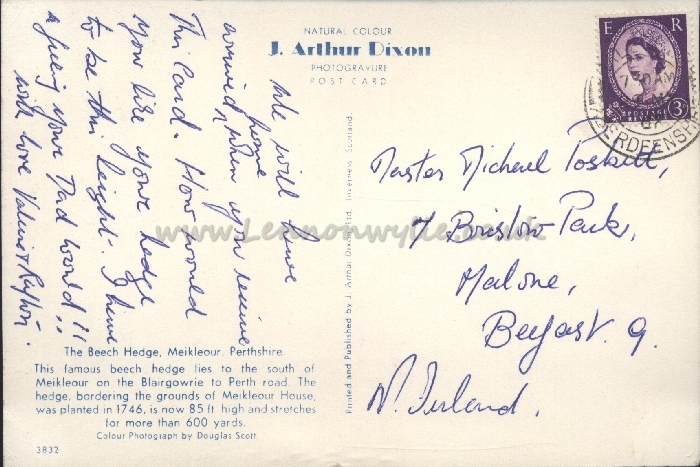 NATURAL COLOUR
J. Arthur Dixon
PHOTOGRAVURE
POST CARD
We will have
arrived home when you receive
This Card. How would
you like your hedge
to be this height. I have
a feeling your Dad would!!
with love Valerie &
E R
7-30 AM
POSTAGE REVENUE
3D
ABERDEENSHIRE
Master Michael Poskitt,
7 Bristow Park,
Malone,
Belfast. 9.
N. Ireland.
Printed and Published by J. Arthur Dixon Ltd. Inverness Scotland.
www.Lennonwylie.co.uk
The Beech Hedge, Meikleour. Perthshire.
This famous beech hedge lies to the south of
Meikleour on the Blairgowrie to Perth road. The
hedge, bordering the grounds of Meikleour House,
was planted in 1746, is now 85 ft. high and stretches
for more than 600 yards.
Colour Photograph by Douglas Scott.
3832